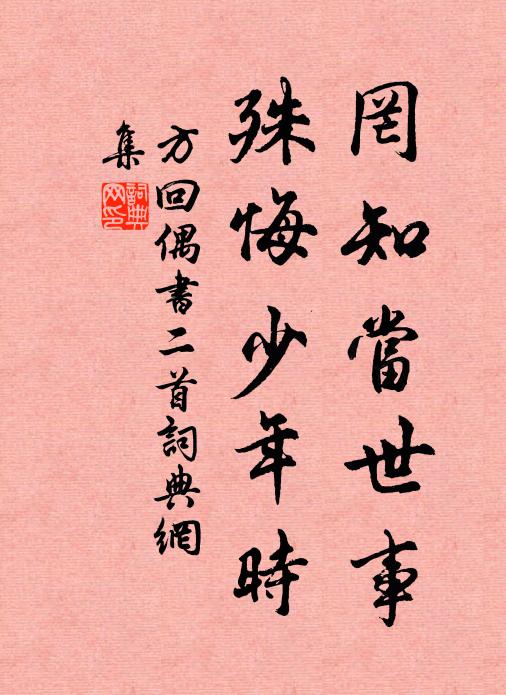 罔知當世事
殊悔少年時
方回偶書二首詞典網
集
詞典
网印